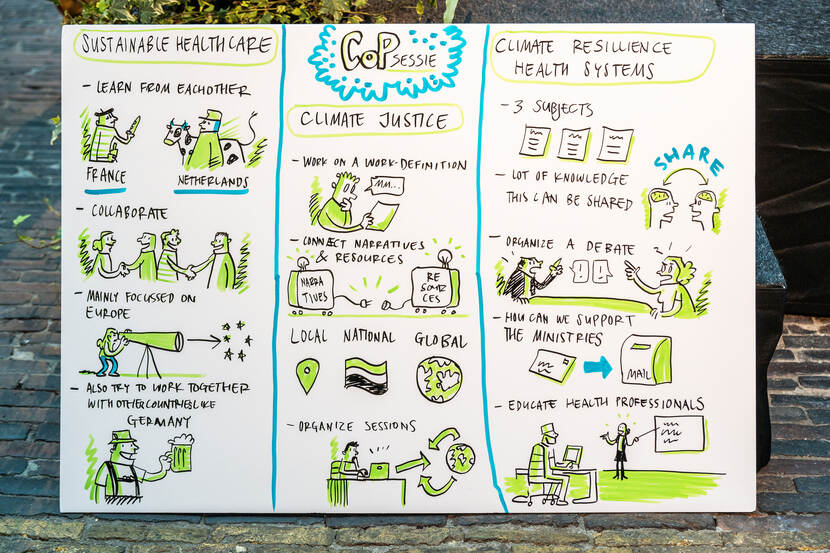 SUSTAINABLE HEALTHCARE
- LEARN FROM EACHOTHER
FRANCE
NETHERLANDS
- COLLABORATE
- MAINLY FOCUSSED ON
EUROPE
- ALSO TRY TO WORK TOGETHER
WITH OTHER COUNTRIES LIKE
GERMANY
CoP SESSIE
CLIMATE JUSTICE
- WORK ON A WORK-DEFINITION
MM...
- CONNECT NARRATIVES
& RESOURCES
NARRA
TIVES
RE
SOUR
CES
LOCAL NATIONAL GLOBAL
- ORGANIZE SESSIONS
CLIMATE RESILLIENCE
HEALTH SYSTEMS
- 3 SUBJECTS
- LOT OF KNOWLEDGE
THIS CAN BE SHARED
SHARE
- ORGANIZE A DEBATE
- HOU CAN WE SUPPORT
THE MINISTRIES
MAIL
- EDUCATE HEALTH PROFESSIONALS